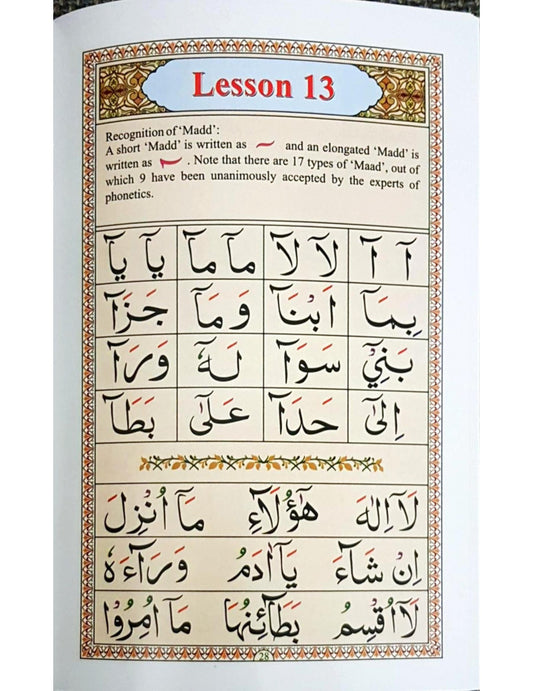 Lesson 13
Recognition of ‘Madd’:
A short ‘Madd’ is written as and an elongated ‘Madd’ is
written as . Note that there are 17 types of ‘Maad’, out of
which 9 have been unanimously accepted by the experts of
phonetics.
آ آ لَآ لَآ مَآ مَآ يَآ يَآ
بِمَآ اَبْنَآ وَمَآ جَزَآ
بَنِيْٓ سَوَآ لَهٗٓ وَرَآ
اِلٰٓى حَدَآ عَلٰٓى بَطَآ
لَآ اِلٰهَ هٰٓؤُلَآءِ مَآ اُنْزِلَ
اِنْ شَآءَ يَآ اٰدَمُ وَرَآءَهٗ
لَآ اُقْسِمُ بَطَآئِنُهَا مَآ اُمِرُوْا
28